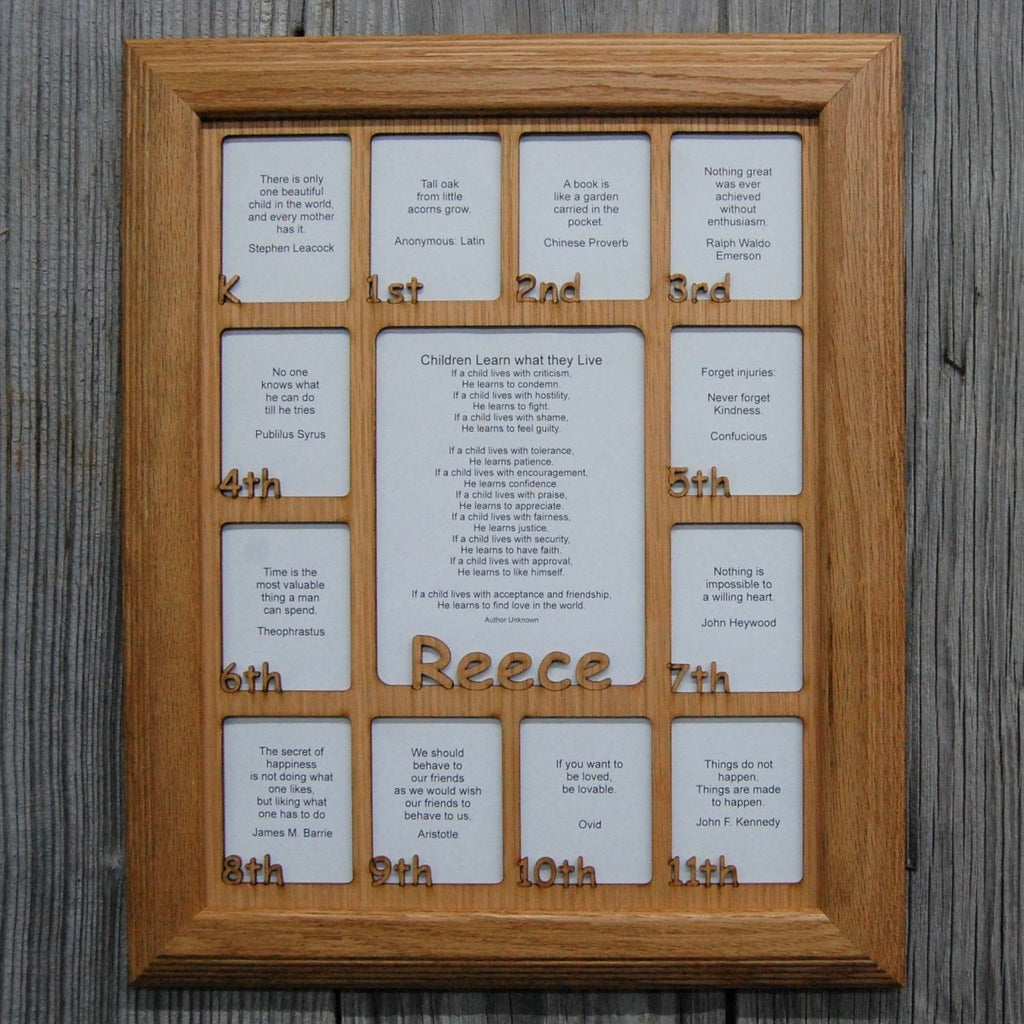 There is only
one beautiful
child in the world,
and every mother
has it.
Stephen Leacock
K
Tall oak
from little
acorns grow.
Anonymous: Latin
1st
A book is
like a garden
carried in the
pocket.
Chinese Proverb
2nd
Nothing great
was ever
achieved
without
enthusiasm.
Ralph Waldo
Emerson
3rd
No one
knows what
he can do
till he tries
Publilus Syrus
4th
Children Learn what they Live
If a child lives with criticism,
He learns to condemn.
If a child lives with hostility,
He learns to fight.
If a child lives with shame,
He learns to feel guilty.
If a child lives with tolerance,
He learns patience.
If a child lives with encouragement,
He learns confidence.
If a child lives with praise,
He learns to appreciate.
If a child lives with fairness,
He learns justice.
If a child lives with security,
He learns to have faith.
If a child lives with approval,
He learns to like himself.
If a child lives with acceptance and friendship,
He learns to find love in the world.
Author Unknown
Reece
Forget injuries:
Never forget
Kindness.
Confucious
5th
Time is the
most valuable
thing a man
can spend.
Theophrastus
6th
Nothing is
impossible to
a willing heart.
John Heywood
7th
The secret of
happiness
is not doing what
one likes,
but liking what
one has to do
James M. Barrie
8th
We should
behave to
our friends
as we would wish
our friends to
behave to us.
Aristotle
9th
If you want to
be loved,
be lovable.
Ovid
10th
Things do not
happen.
Things are made
to happen.
John F. Kennedy
11th